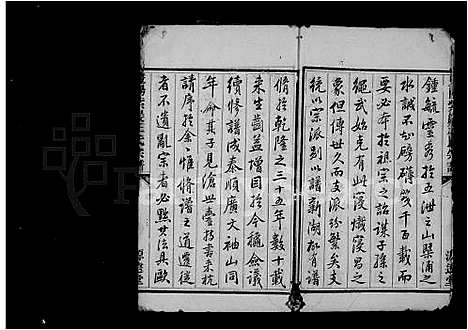 鍾毓靈秀於五泄之山槩浦之
水誠不知磅礴幾千百載而
要必本於祖宗之詒謀子孫之
繩武始克有此寖熾寖昌之
象但傳世久而支派紛繁矣支
統以宗派別以譜新湖故有譜
脩於乾隆之三十五年數十載
來生齒益增因於今歲僉議
續修譜成泰順廣文袖山同
年命其子見滄世臺持書來杭
請序於余惟修譜之道遷徙
者不遺亂宗者必黜其法具歐